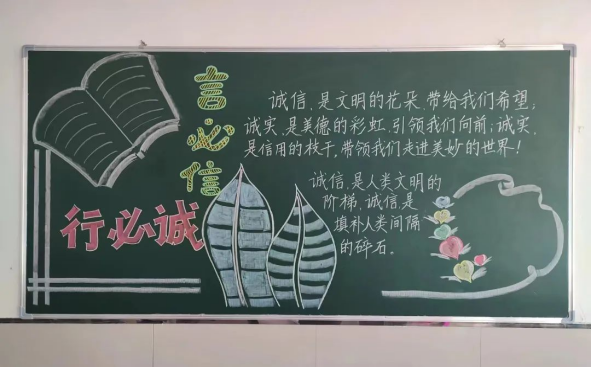 言必信
行必诚
诚信,是文明的花朵,带给我们希望;
诚实,是美德的彩虹,引领我们向前;诚实,
是信用的枝干,带领我们走进美妙的世界!
诚信,是人类文明的
阶梯,诚信是
填补人类间隔
的碎石。